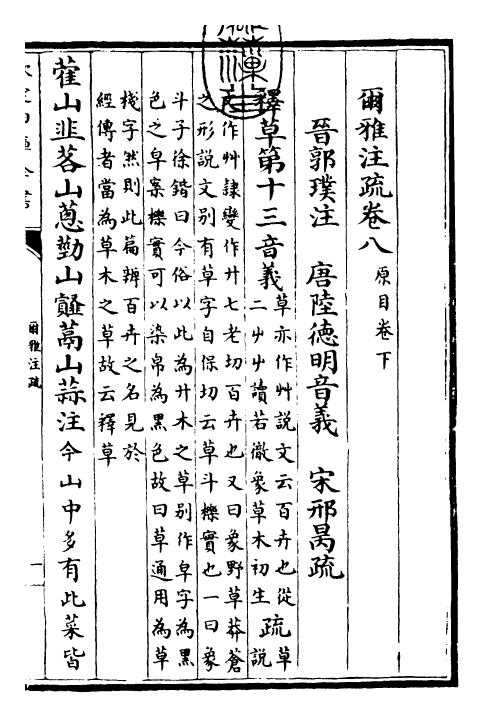 爾雅注疏卷八 原目卷下
晉郭璞注 唐陸徳明音義 宋邢昺疏
釋草第十三音義 草亦作艸說文云百卉也從
二屮屮讀若徹象草木初生 疏 草
說
作艸隸變作廾七老切百卉也又曰象野草莽蒼
之形說文别有草字自保切云草斗櫟實也一曰象
斗子徐鍇曰今俗以此為廾木之草别作皁字為黑
色之皁案櫟實可以染帛為黑色故曰草通用為草
棧字然則此篇辨百卉之名見於
經傳者當為草木之草故云釋草
蒮山韭茖山蔥葝山䪥蒚山蒜注今山中多有此菜皆
爾雅注疏
一